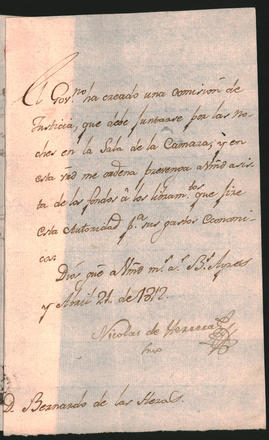 El Gov.no ha creado una comision de
Justicia, que debe juntarse por las no-
ches en la Sala de la Camara; y en
esta me ordena prevenga a Vmd asis-
ta de los fondos à los libram.tos que tire
esta Autoridad p.a sus gastos Economi-
cos.
Dios gue à Vmd m.s a.s B.s Ayres
y Abril 21. de 1812.
Nicolas de Herrera
D. Bernardo de las Heras.